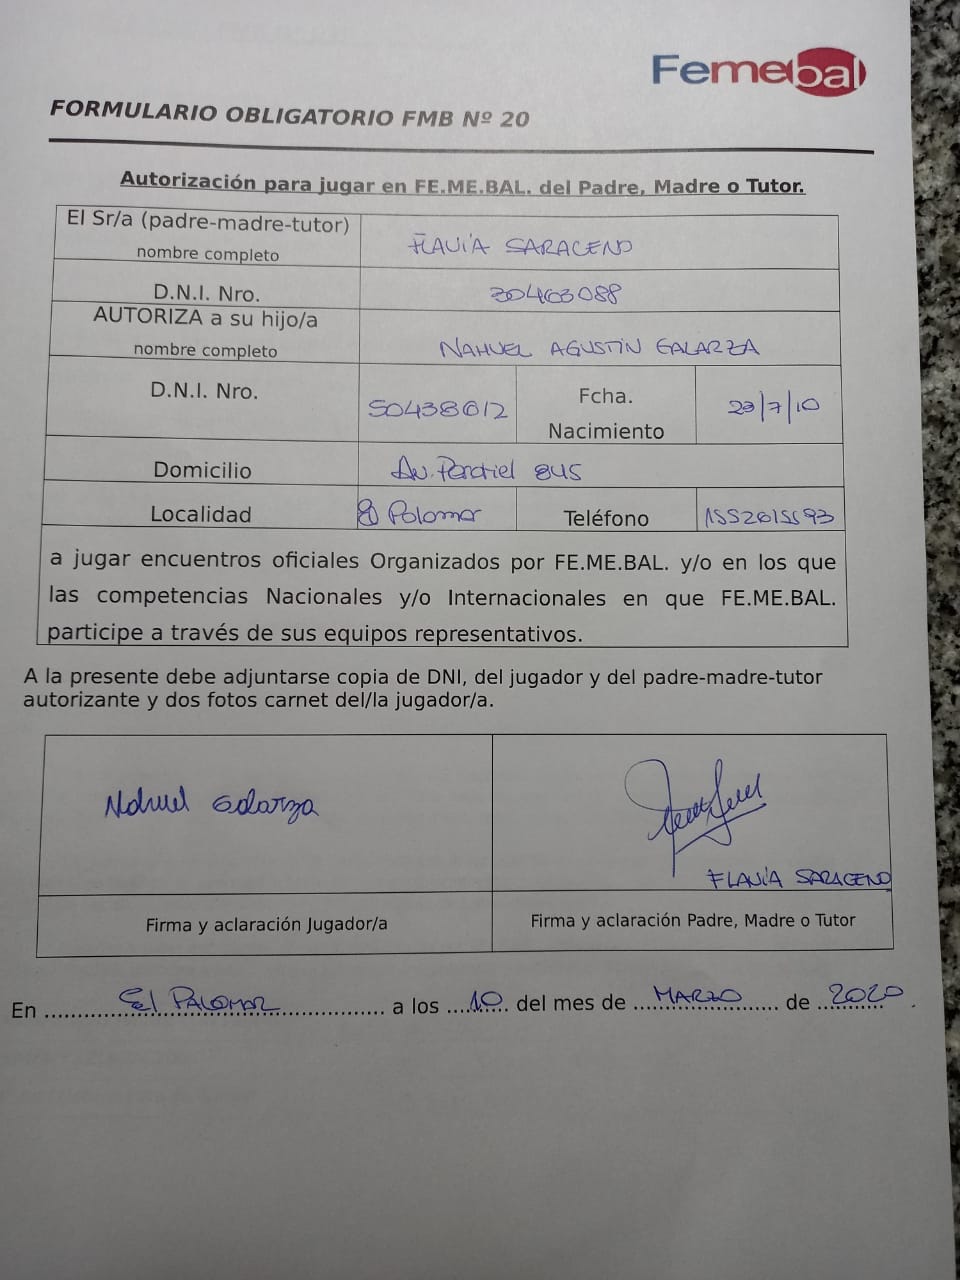 Femebal
FORMULARIO OBLIGATORIO FMB Nº 20
Autorización para jugar en FE.ME.BAL. del Padre, Madre o Tutor.
El Sr/a (padre-madre-tutor)
nombre completo
FLAVIA SARACENO
D.N.I. Nro.
30463088
AUTORIZA a su hijo/a
nombre completo
NAHUEL AGUSTIN GALARZA
D.N.I. Nro.
Fcha.
Nacimiento
23/7/10
Domicilio
Av. 845
Localidad
El Palomar
Teléfono
a jugar encuentros oficiales Organizados por FE.ME.BAL. y/o en los que
las competencias Nacionales y/o Internacionales en que FE.ME.BAL.
participe a través de sus equipos representativos.
A la presente debe adjuntarse copia de DNI, del jugador y del padre-madre-tutor
autorizante y dos fotos carnet del/la jugador/a.
Nahuel Galarza
FLAVIA SARACENO
Firma y aclaración Jugador/a
Firma y aclaración Padre, Madre o Tutor
En El PALOMAR a los 10 del mes de MARZO de 2020.